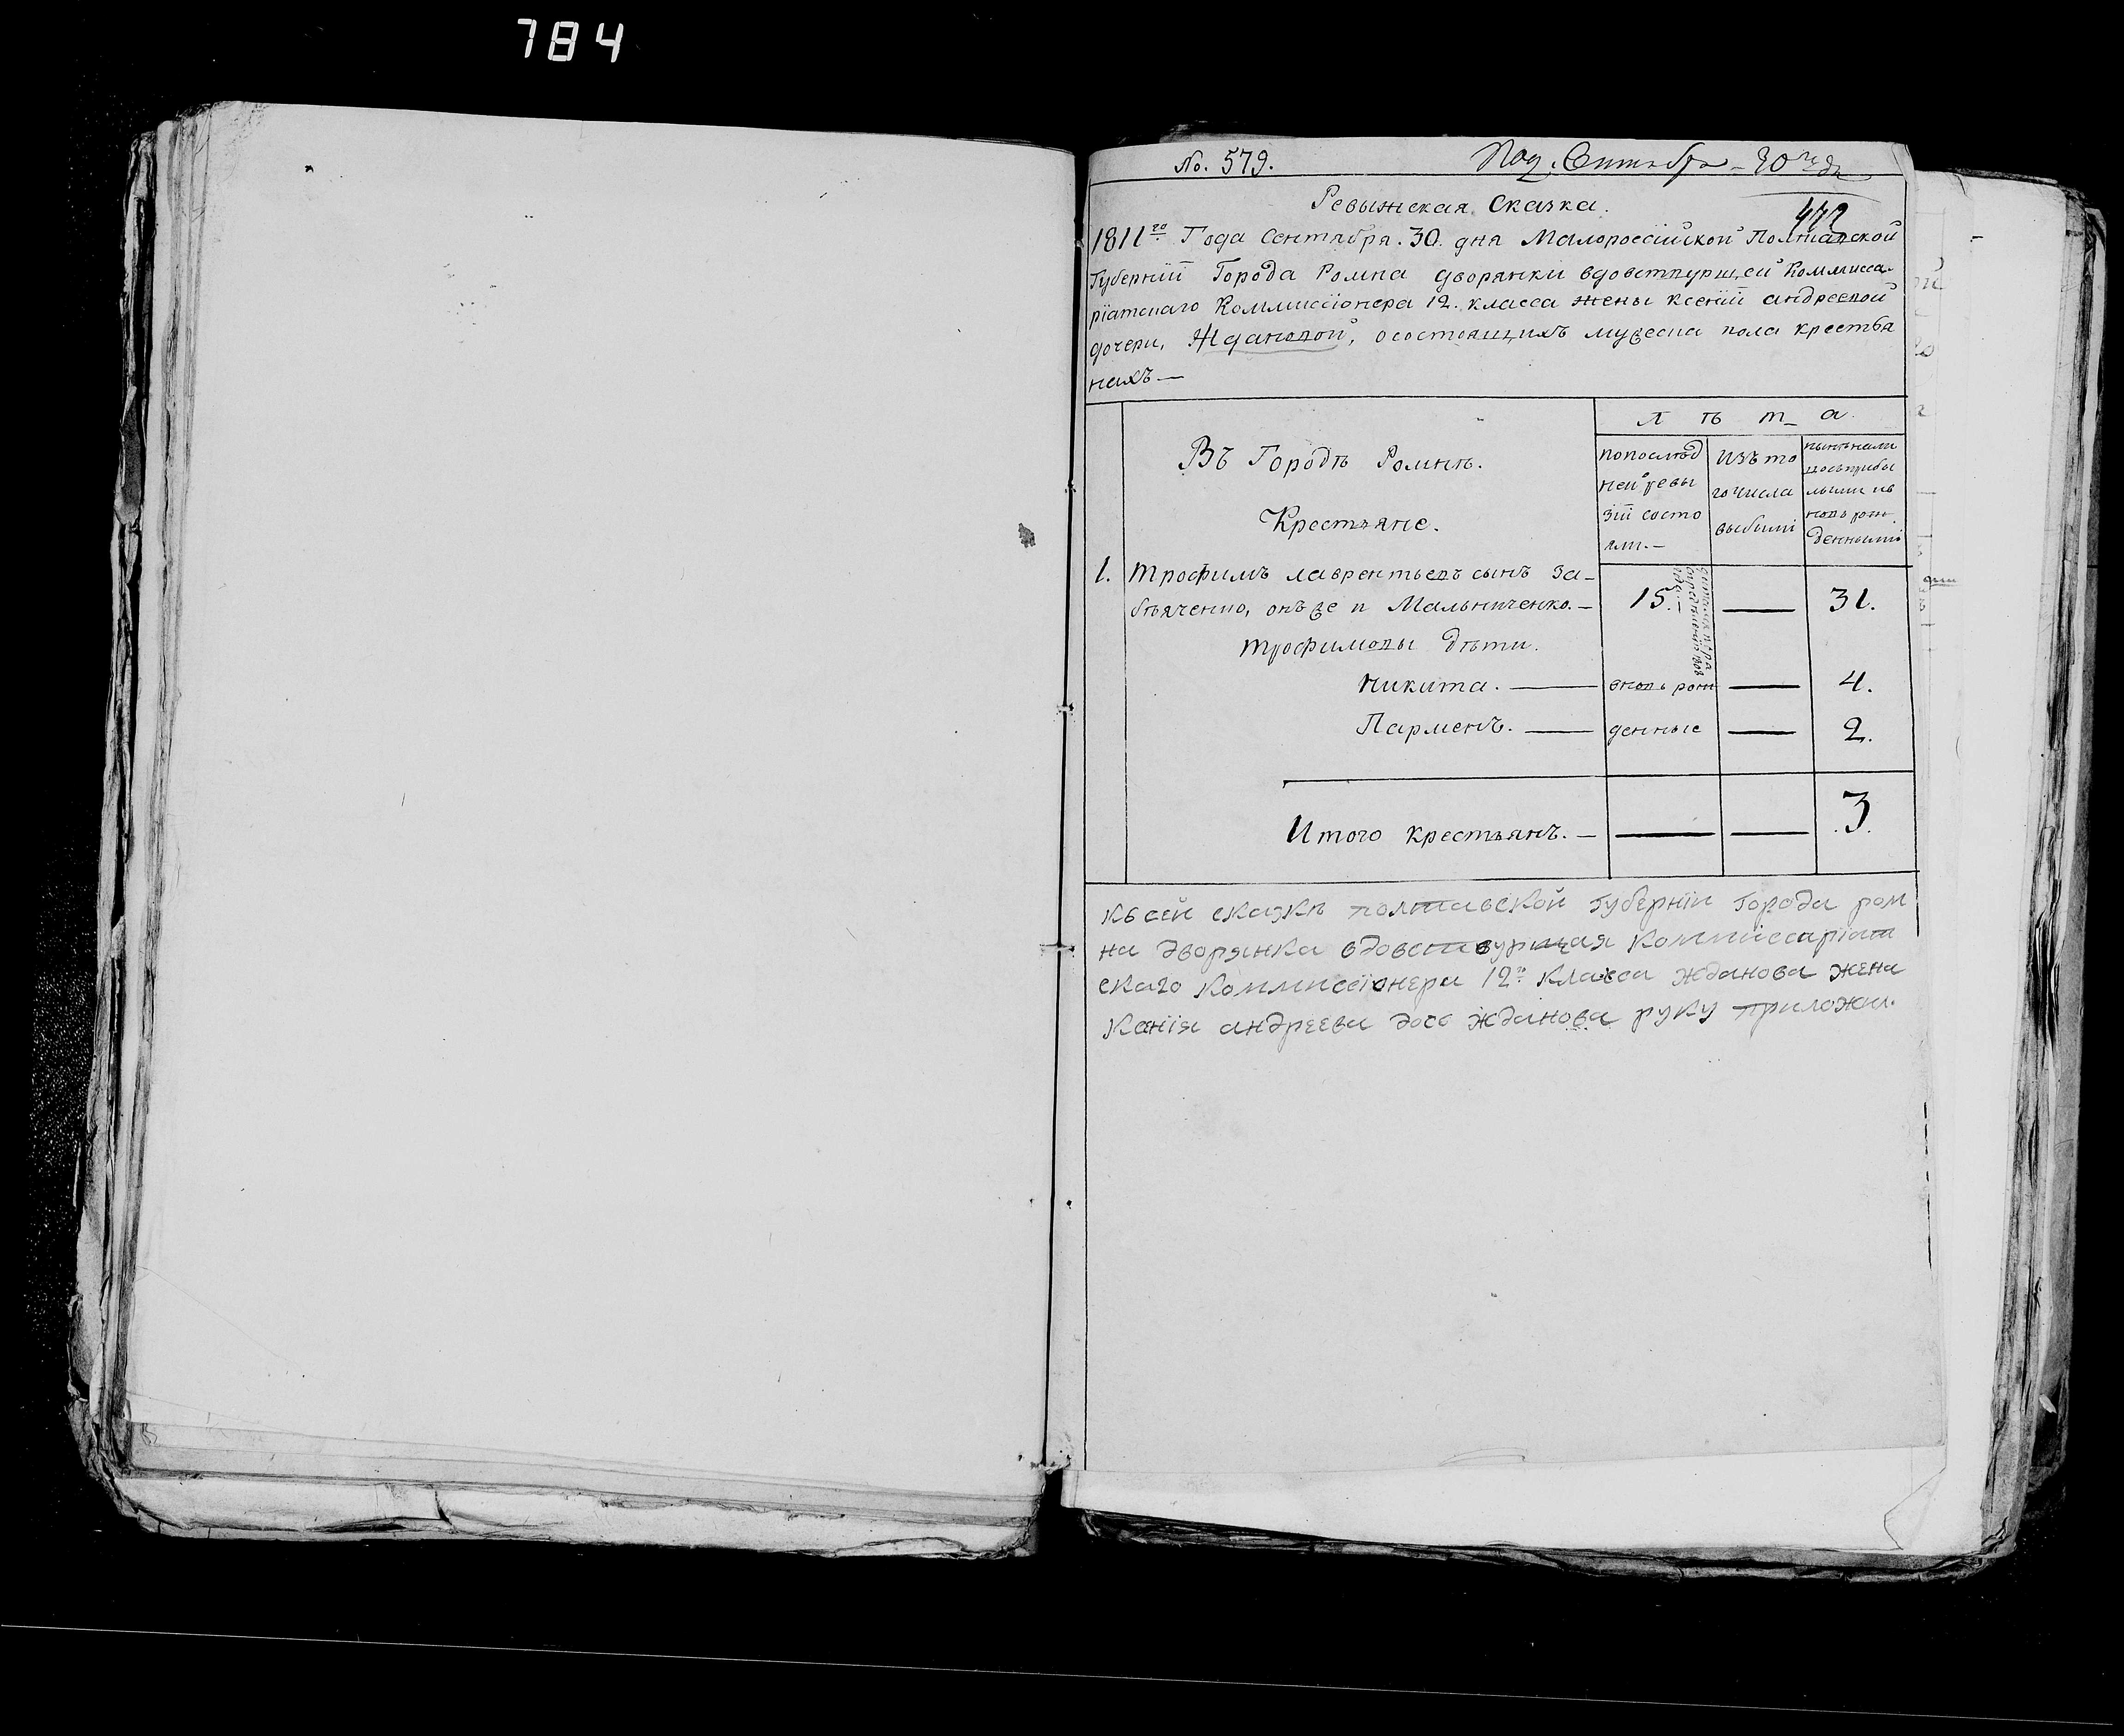 784
No. 579.
Под. Сентября – 30го дн
472
Ревыжская Сказка.
1811го Года Сентября. 30. дня Малороссійской Полтавской
Губерніи Города Ромна дворянки вдовствующей Коммисса-
ріатскаго Коммиссіонера 12. класса жены Ксеніи андреевой
дочери, Ждановой, осостоящихъ мужеска пола крестья
нахъ —
Л ѣ т а.
Въ Городѣ Ромнѣ.
Крестьяне.
попослѣд
ней ревы
зіи состо
яли. —
Изъ то
го числа
выбыли
нынѣ нали
цо съ прибы
лыми и в
новь рож
денными
1. Трофимъ лаврентьевъ сынъ За-
бѣяченко, онъ же и Мальниченко. — 15. — 31.
Трофимовы дѣти.
Никита. — вновь рож — 4.
Парменъ. — денные — 2.
Итого крестьянъ. — — — 3.
Къ сей скажкѣ полтавской губерніи города ром
на дворянка вдовствующая Коммиссаріат
скаго Коммиссіонера 12го Класса жданова жена
Ксенія андреева доч жданова руку приложил.